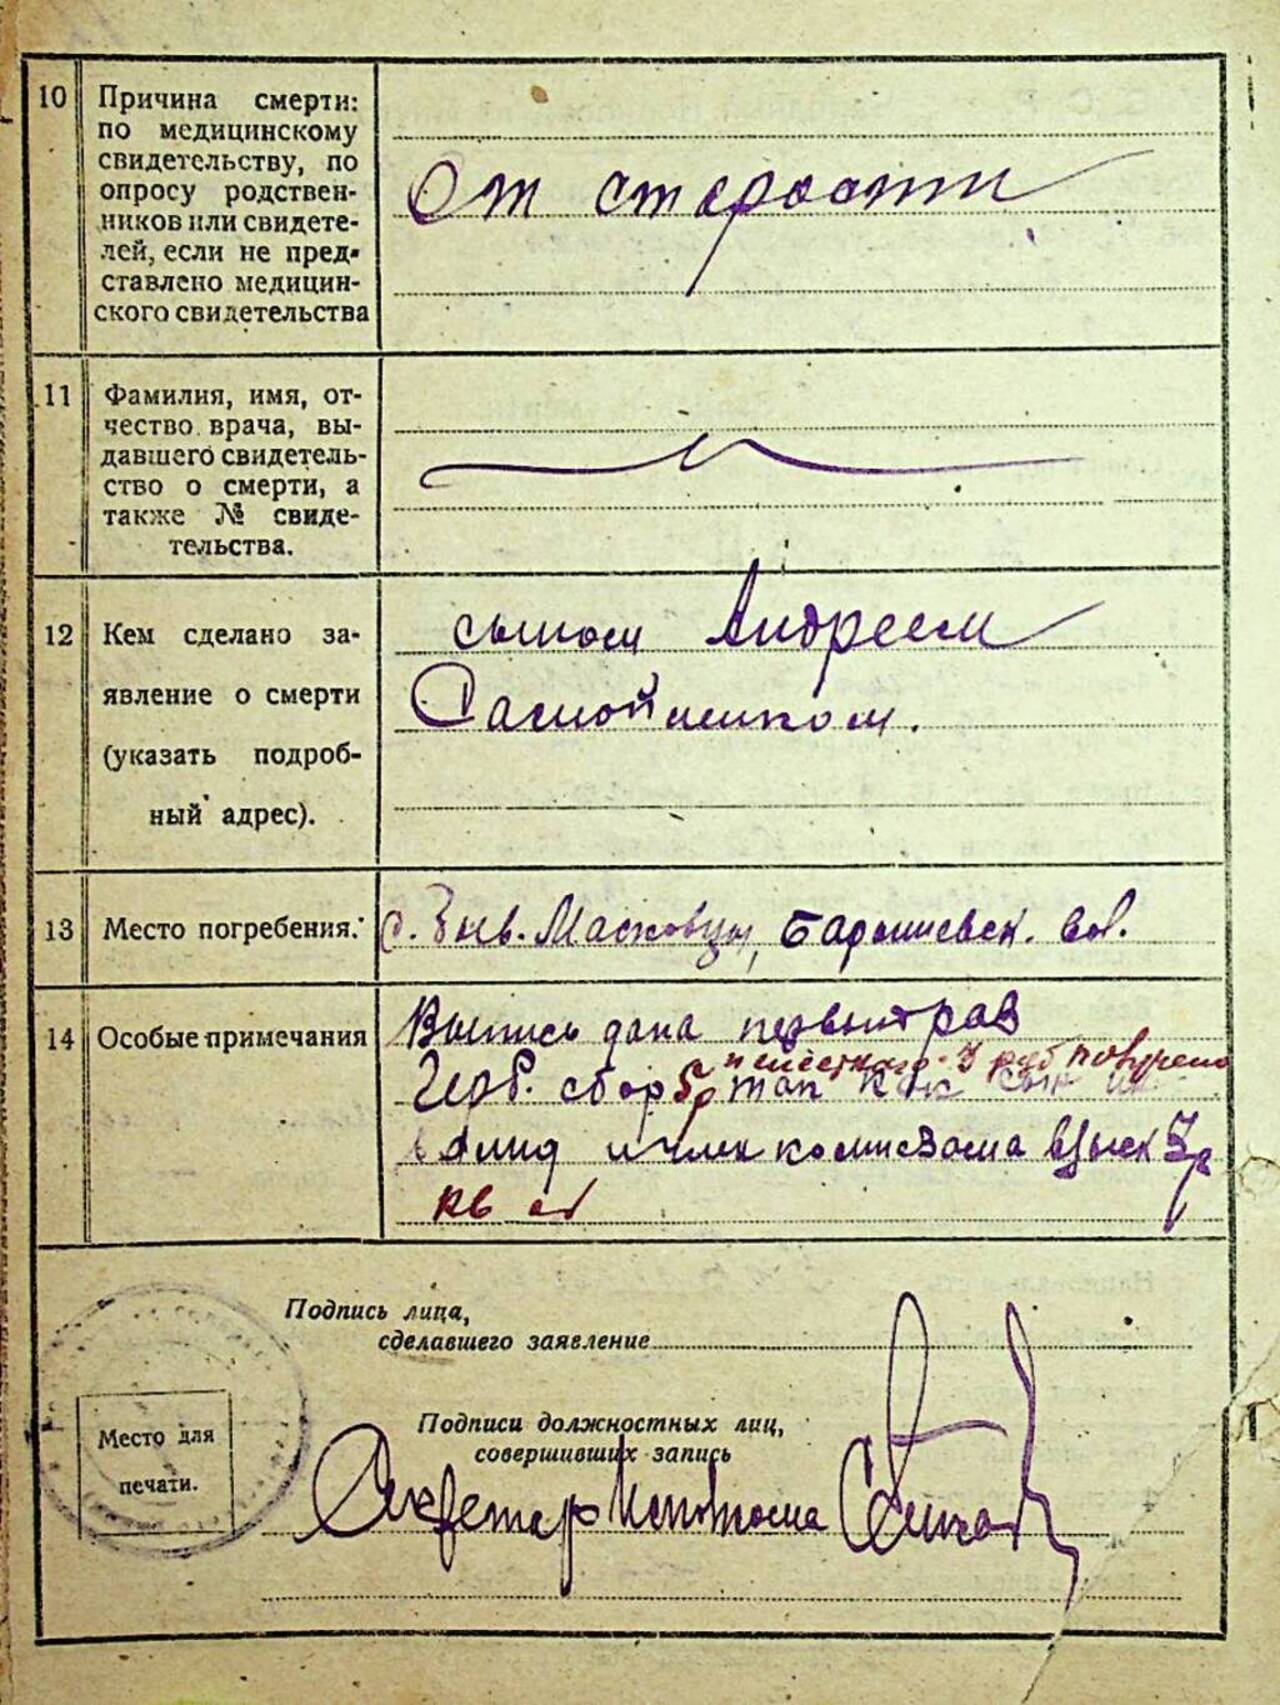 10 Причина смерти:
по медицинскому
свидетельству, по
опросу родствен-
ников или свидете-
лей, если не пред-
ставлено медицин-
ского свидетельства
От старости
11 Фамилия, имя, от-
чество врача, вы-
давшего свидетель-
ство о смерти, а
также № свиде-
тельства.
12 Кем сделано за-
явление о смерти
(указать подроб-
ный адрес).
сыном Андреем
13 Место погребения.
Барышевск. вол.
14 Особые примечания
Выпись дана
Герб. сбор 5р как сын
и член взыск 3р
Подпись лица,
сделавшего заявление
Подписи должностных лиц,
совершивших запись
Место для
печати.
Секретар